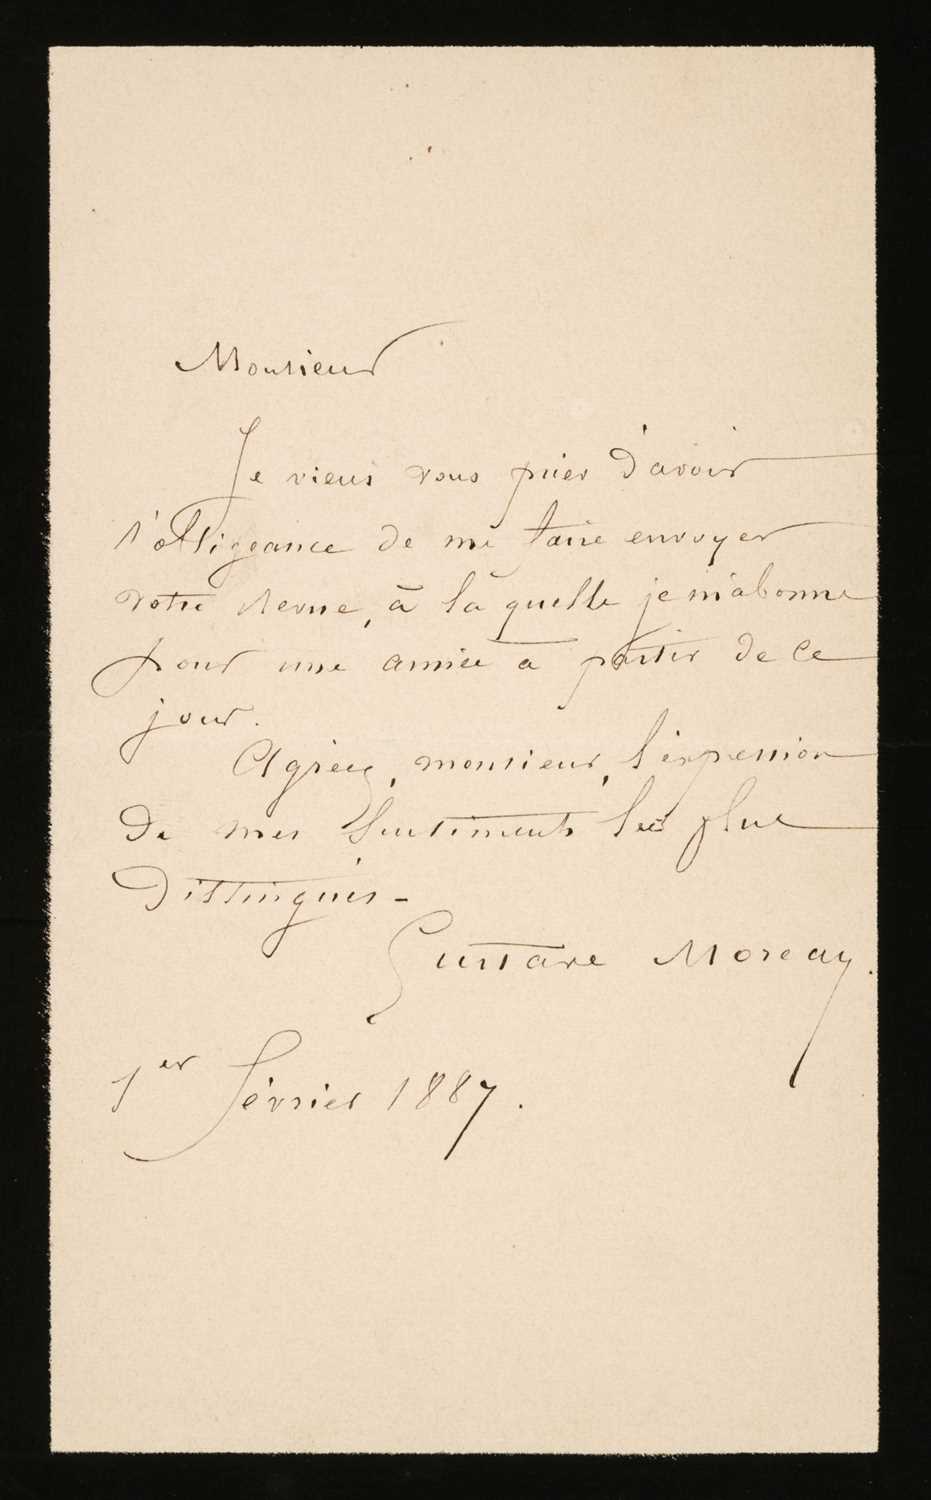 Monsieur
Je viens vous prier d'avoir
l'obligeance de me faire envoyer
votre revue, à la quelle je m'abonne
pour une année à partir de ce
jour.
Agréez, monsieur, l'expression
de mes sentiments les plus
distingués -
Gustave Moreau.
1er février 1887.